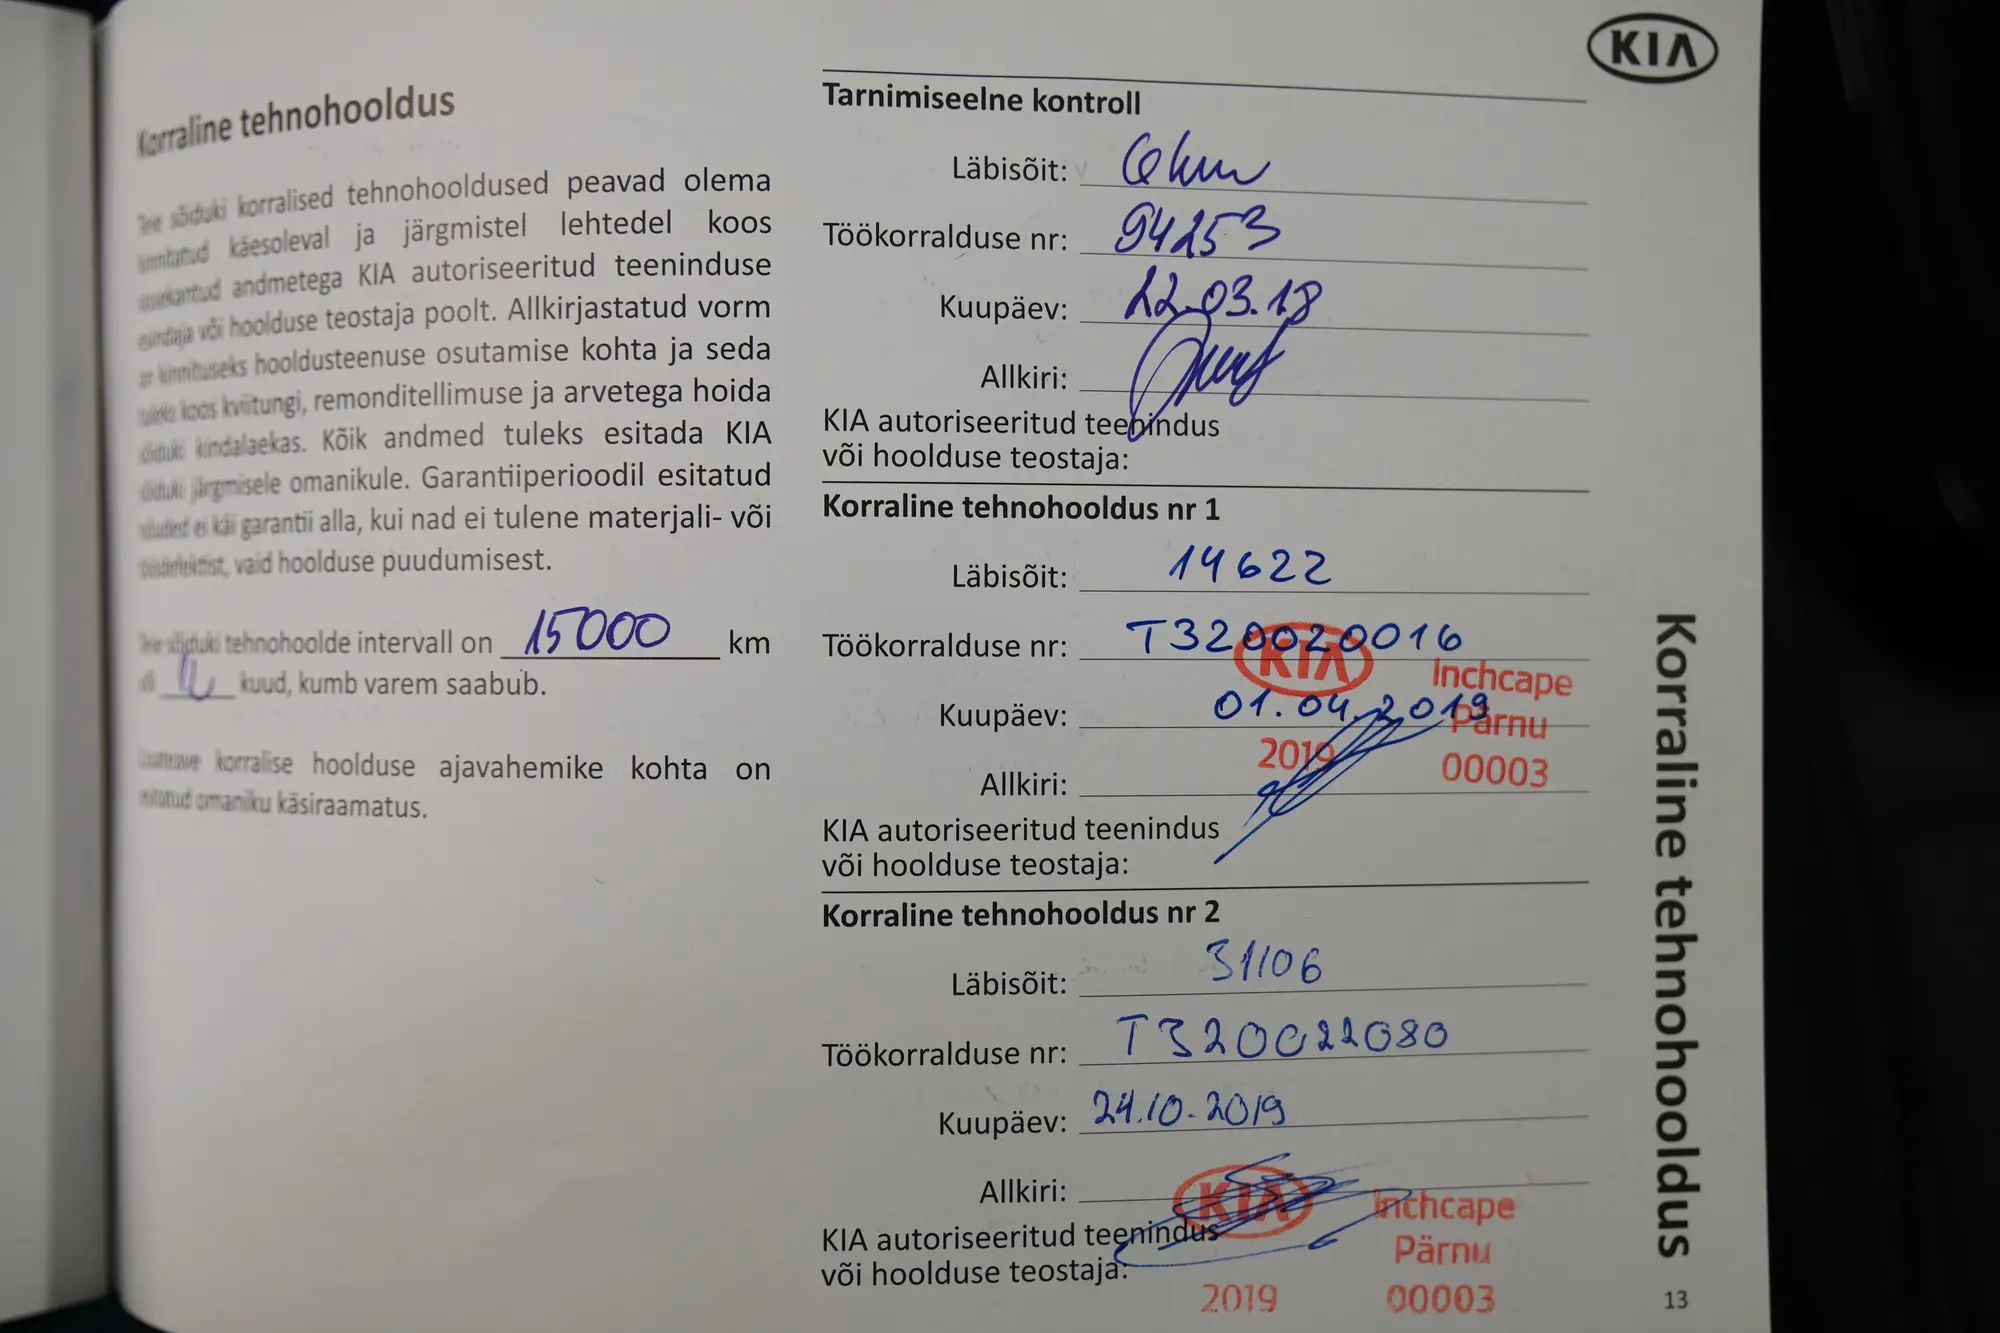 Korraline tehnohooldus
Teie sõiduki korralised tehnohooldused peavad olema
kinnitatud käesoleval ja järgmistel lehtedel koos
sissekantud andmetega KIA autoriseeritud teeninduse
esindaja või hoolduse teostaja poolt. Allkirjastatud vorm
on kinnituseks hooldusteenuse osutamise kohta ja seda
tuleks koos kviitungi, remonditellimuse ja arvetega hoida
sõiduki kindalaekas. Kõik andmed tuleks esitada KIA
sõiduki järgmisele omanikule. Garantiiperioodil esitatud
nõuded ei käi garantii alla, kui nad ei tulene materjali- või
vaid hoolduse puudumisest.
Teie sõiduki tehnohoolde intervall on 15000 km
või kuud, kumb varem saabub.
korralise hoolduse ajavahemike kohta on
esitatud omaniku käsiraamatus.
KIA
Tarnimiseelne kontroll
Läbisõit: 6km
Töökorralduse nr: 94253
Kuupäev: 22.03.18
Allkiri:
KIA autoriseeritud teenindus
või hoolduse teostaja:
Korraline tehnohooldus nr 1
Läbisõit: 14622
Töökorralduse nr: T320020016
KIA Inchcape
Kuupäev: 01.04.2019
Pärnu
2019 00003
Allkiri:
KIA autoriseeritud teenindus
või hoolduse teostaja:
Korraline tehnohooldus nr 2
Läbisõit: 31106
Töökorralduse nr: T320022080
Kuupäev: 24.10.2019
Allkiri:
KIA Inchcape
KIA autoriseeritud teenindus
Pärnu
või hoolduse teostaja:
2019 00003
Korraline tehnohooldus
13